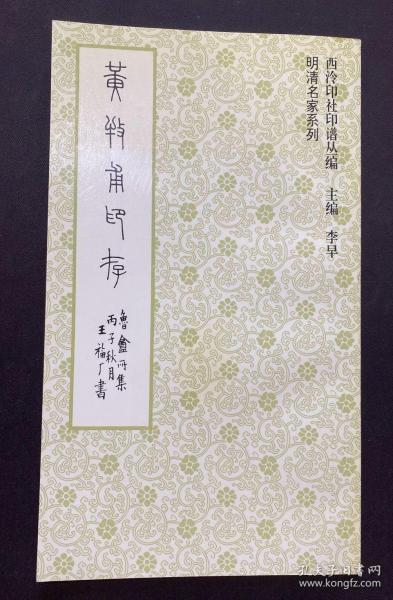 西泠印社印谱丛编 主编 李早
明清名家系列
黄牧甫印存
鲁盦所集
丙子秋月
王福厂书
孔夫子旧书网
www.kongfz.com